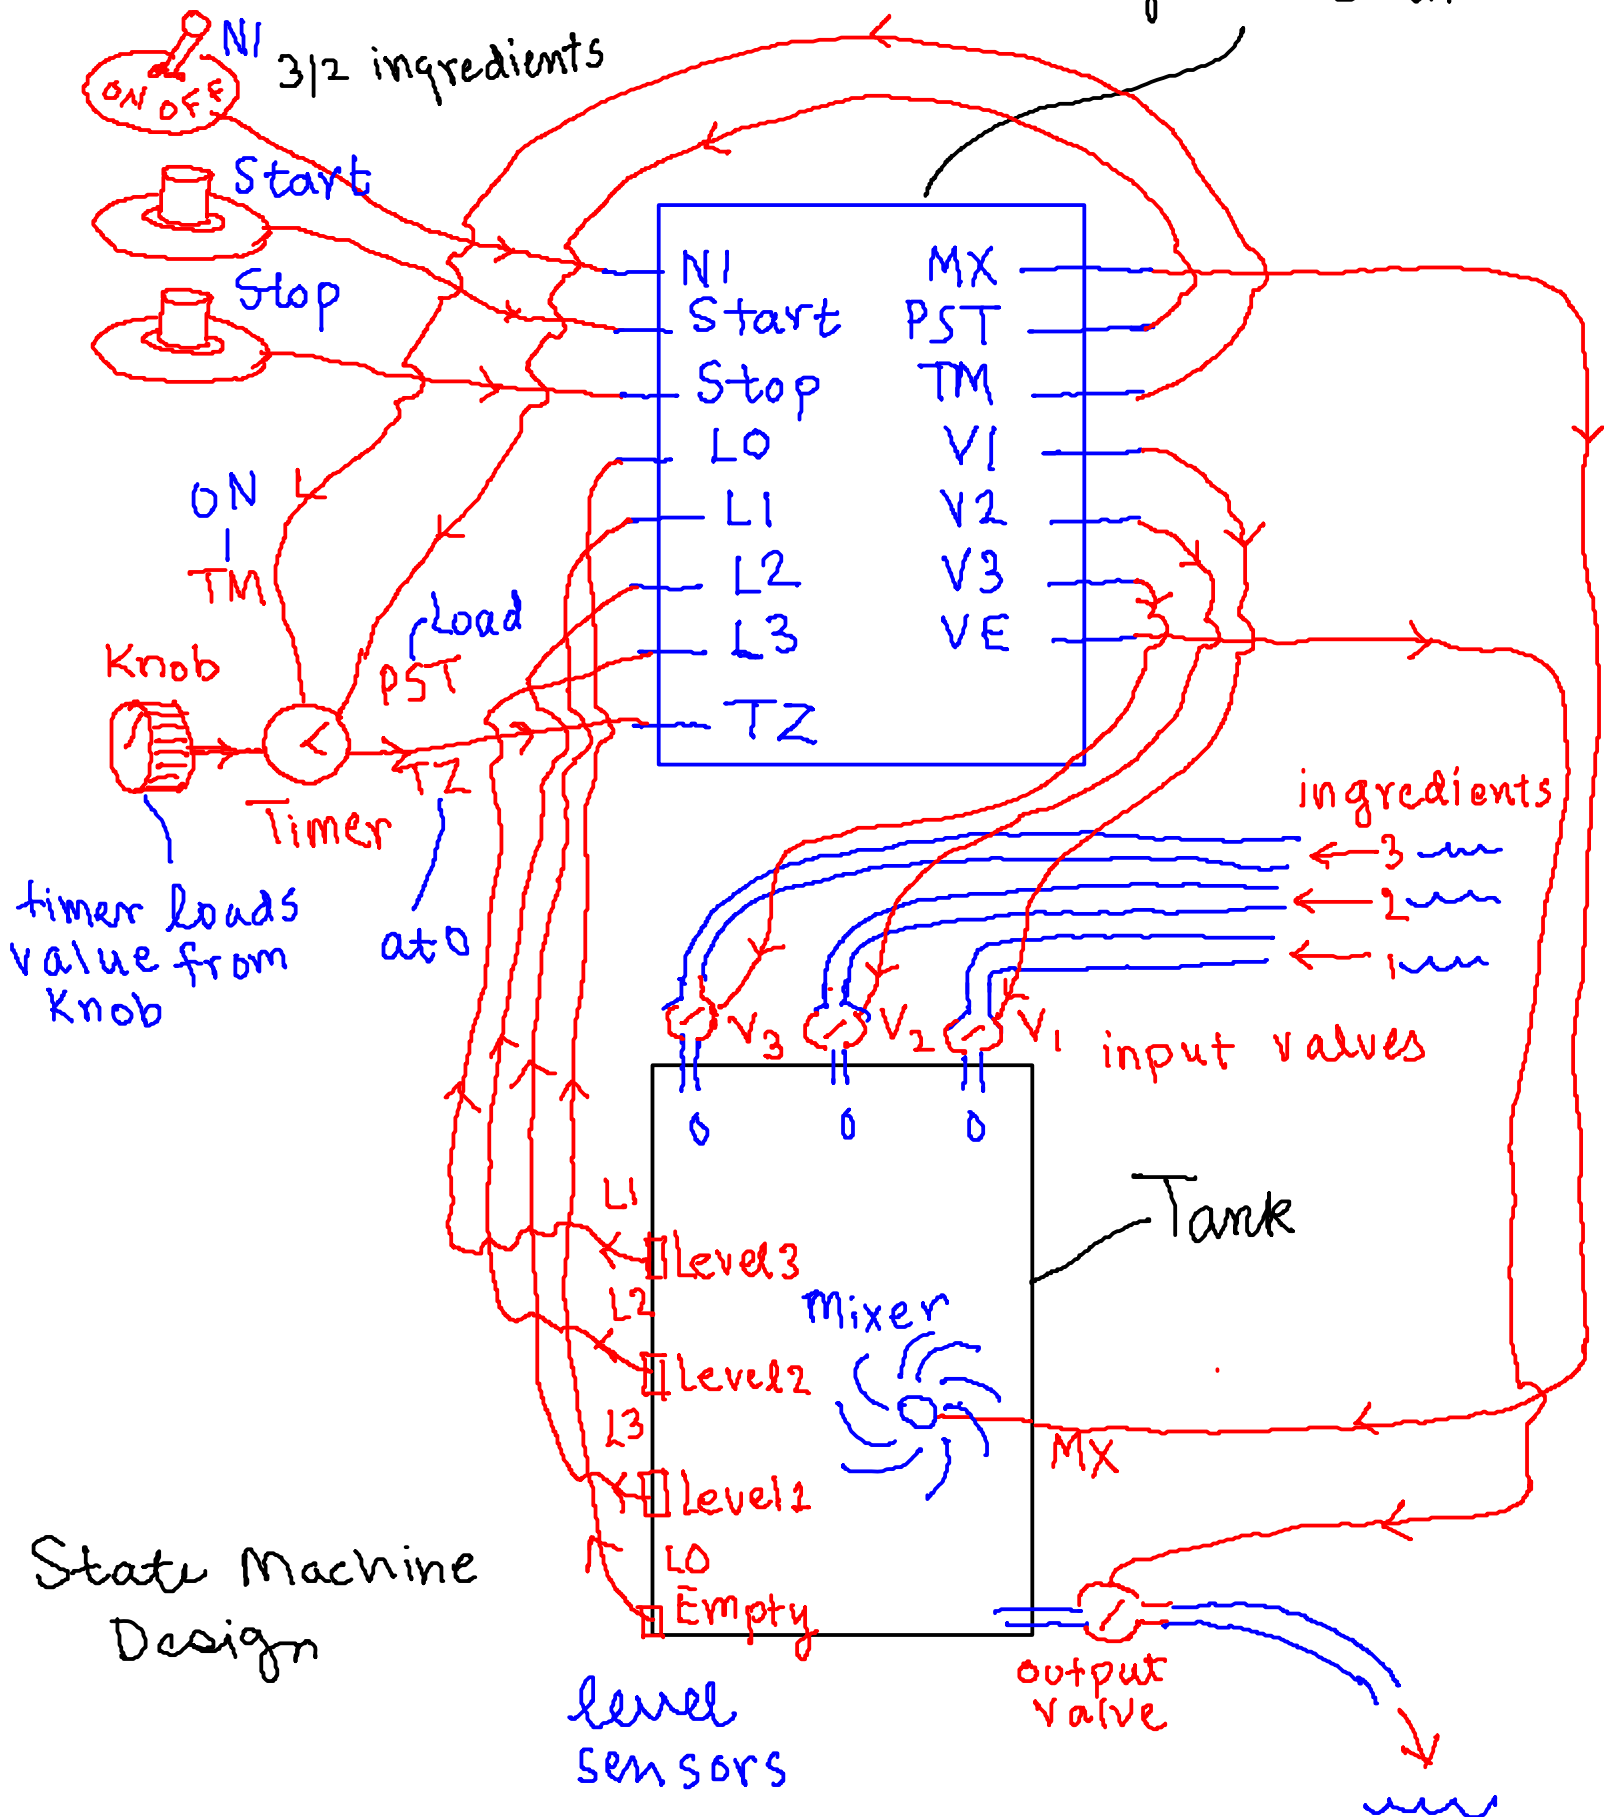 NI
3/2 ingredients
ON OFF
Start
Stop
NI
Start
Stop
L0
L1
L2
L3
TZ
MX
PST
TM
V1
V2
V3
VE
ON
TM
Load
PST
Knob
TZ
Timer
timer loads
value from
Knob
at 0
ingredients
3
2
1
V3
V2
V1
input valves
Tank
L1
Level3
L2
Level2
L3
Level1
L0
Empty
Mixer
MX
State Machine
Design
level
sensors
output
valve